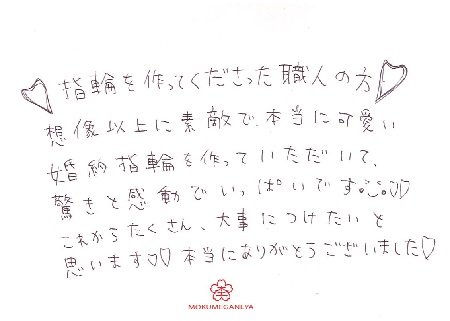 ♡指輪を作ってくださった職人の方♡
想像以上に素敵で、本当に可愛い
婚約指輪を作っていただいて、
驚きと感動でいっぱいです。♡♡
これからたくさん、大事につけたいと
思います♡♡本当にありがとうございました♡
MOKUMEGANEYA